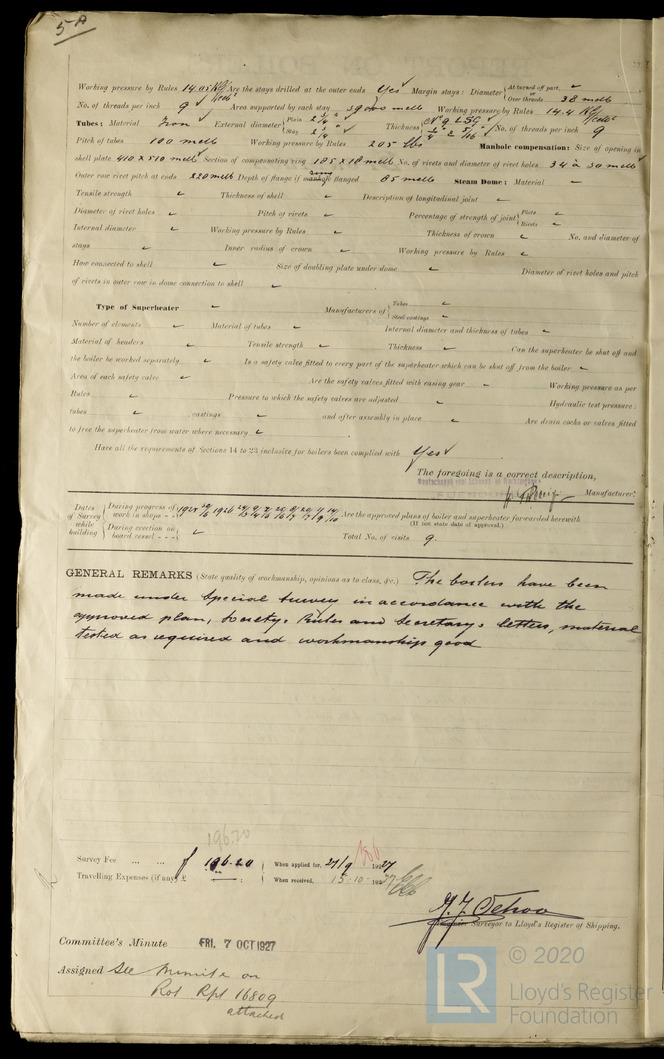 5A
Working pressure by Rules 14.05 Kg/ Are the stays drilled at the outer ends Yes ✓ Margin stays: Diameter { At turned off part, ✓ or Over threads 38 m
No. of threads per inch 9 ✓ Area supported by each stay Working pressure by Rules 14.4 Kg/
Tubes: Material Iron External diameter { Plain 2 3/4" Stay 2 3/4" ✓ Thickness { No 9 LSG ✓ 1/4" & 5/16" ✓ No. of threads per inch 9
Pitch of tubes 100 Working pressure by Rules 205 lbs Manhole compensation: Size of opening in
shell plate 410 x 510 Section of compensating ring 185 x 18 No. of rivets and diameter of rivet holes 34 à 30
Outer row rivet pitch at ends 220 Depth of flange if manhole flanged 85 Steam Dome: Material ✓
Tensile strength ✓ Thickness of shell ✓ Description of longitudinal joint ✓
Diameter of rivet holes ✓ Pitch of rivets ✓ Percentage of strength of joint { Plate ✓ Rivets ✓
Internal diameter ✓ Working pressure by Rules ✓ Thickness of crown ✓ No. and diameter of
stays ✓ Inner radius of crown ✓ Working pressure by Rules ✓
How connected to shell ✓ Size of doubling plate under dome ✓ Diameter of rivet holes and pitch
of rivets in outer row in dome connection to shell ✓
Type of Superheater ✓ Manufacturers of { Tubes ✓ Steel castings ✓
Number of elements ✓ Material of tubes ✓ Internal diameter and thickness of tubes ✓
Material of headers ✓ Tensile strength ✓ Thickness ✓ Can the superheater be shut off and
the boiler be worked separately ✓ Is a safety valve fitted to every part of the superheater which can be shut off from the boiler ✓
Area of each safety valve ✓ Are the safety valves fitted with easing gear ✓ Working pressure as per
Rules ✓ Pressure to which the safety valves are adjusted ✓ Hydraulic test pressure:
tubes ✓ castings ✓ and after assembly in place ✓ Are drain cocks or valves fitted
to free the superheater from water where necessary ✓
Have all the requirements of Sections 14 to 23 inclusive for boilers been complied with Yes ✓
The foregoing is a correct description,
Manufacturer.
Dates of Survey while building { During progress of work in shops - - During erection on board vessel - - - ✓
Are the approved plans of boiler and superheater forwarded herewith
(If not state date of approval.)
Total No. of visits 9.
GENERAL REMARKS (State quality of workmanship, opinions as to class, &c.) The boilers have been
made under Special Survey in accordance with the
approved plan, Society's Rules and Secretary's letters, material
tested as required and workmanship good
196.20
Survey Fee ... ... f 196.20 { When applied for, 27/9 1927
Travelling Expenses (if any) £ : : { When received, 15-10- 1927
Surveyor to Lloyd's Register of Shipping.
Committee's Minute FRI. 7 OCT 1927
Assigned See Minute on
Rot Rpt 16809
attached
LR © 2020
Lloyd's Register
Foundation